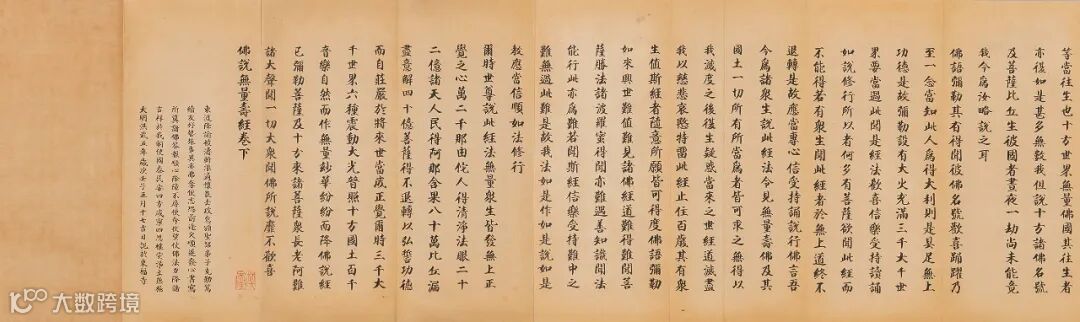 等當往生也十方世界無量佛國其往生者
亦復如是甚多無數我但說十方諸佛名號
及菩薩比丘生彼國者晝夜一劫尚未能竟
我今為汝略說之耳
佛語彌勒其有得聞彼佛名號歡喜踊躍乃
至一念當知此人為得大利則是具足無上
功德是故彌勒設有大火充滿三千大千世
界要當過此聞是經法歡喜信樂受持讀誦
如說修行所以者何多有菩薩欲聞此經而
不能得若有眾生聞此經者於無上道終不
退轉是故應當專心信受持誦說行佛言吾
今為諸眾生說此經法令見無量壽佛及其
國土一切所有所當為者皆可求之無得以
我滅度之後復生疑惑當來之世經道滅盡
我以慈悲哀愍特留此經止住百歲其有眾
生值斯經者隨意所願皆可得度佛語彌勒
如來興世難值難見諸佛經道難得難聞菩
薩勝法諸波羅蜜得聞亦難遇善知識聞法
能行此亦為難若聞斯經信樂受持難中之
難無過此難是故我法如是作如是說如是
教應當信順如法修行
爾時世尊說此經法無量眾生皆發無上正
覺之心萬二千那由佗人得清淨法眼二十
二億諸天人民得阿那含果八十萬比丘漏
盡意解四十億菩薩得不退轉以弘誓功德
而自莊嚴於將來世當成正覺爾時三千大
千世界六種震動大光普照十方國土百千
音樂自然而作無量妙華紛紛而降佛說經
已彌勒菩薩及十方來諸菩薩眾長老阿難
諸大聲聞一切大眾聞佛所說靡不歡喜
佛說無量壽經卷下
大明洪武五年歲次壬子五月十七吉日說於東福寺
大数跨境